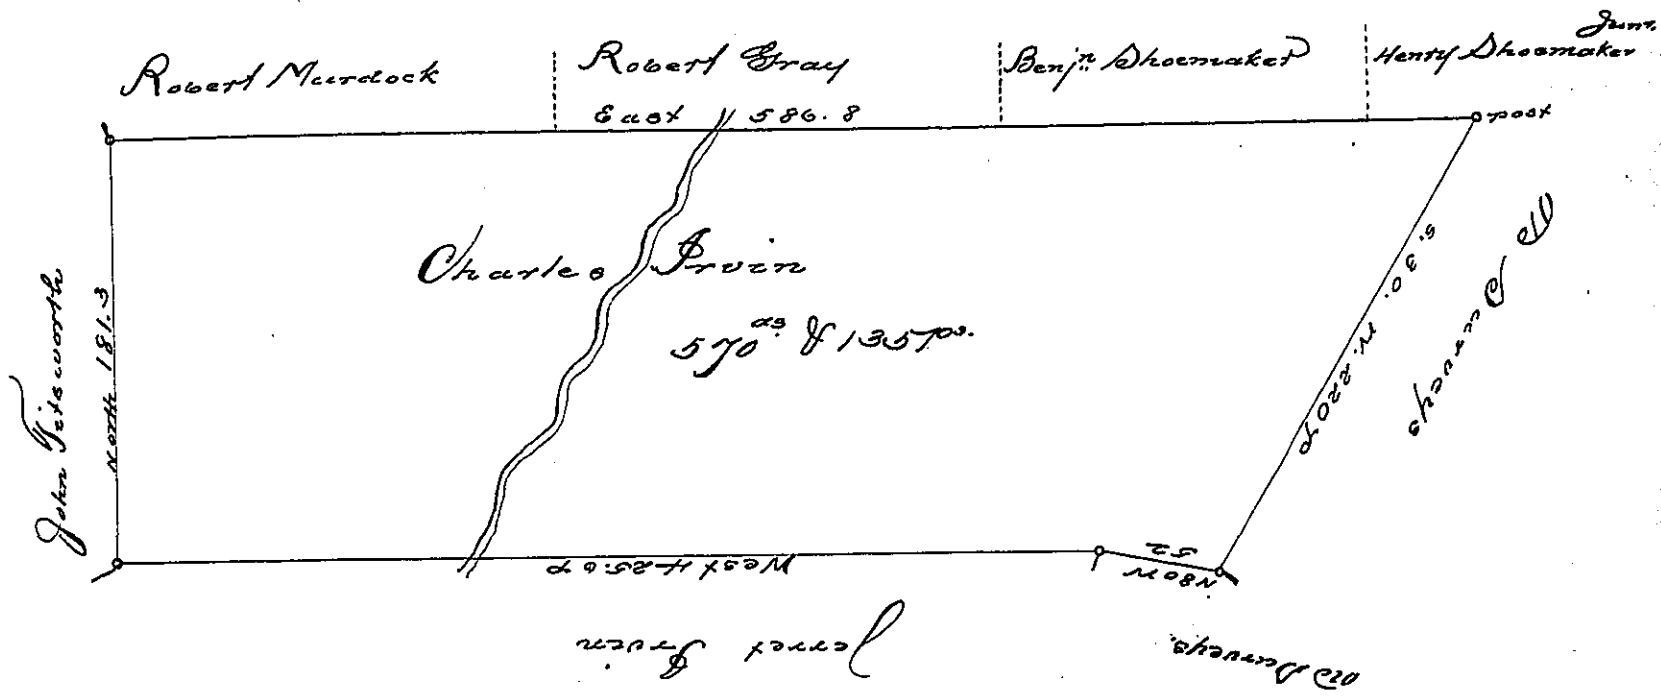 Robert Murdock
Robert Gray
Benjn Shoemaker
Henry Shoemaker Junr.
East 586.8
post
John Titsworth
North 181.3
Charles Irvin
570 as & 135 ps.
S. 30. W. 220 p
Old Surveys
West 425.6 p
N80W
52
Jerret Irvin
Old Surveys.